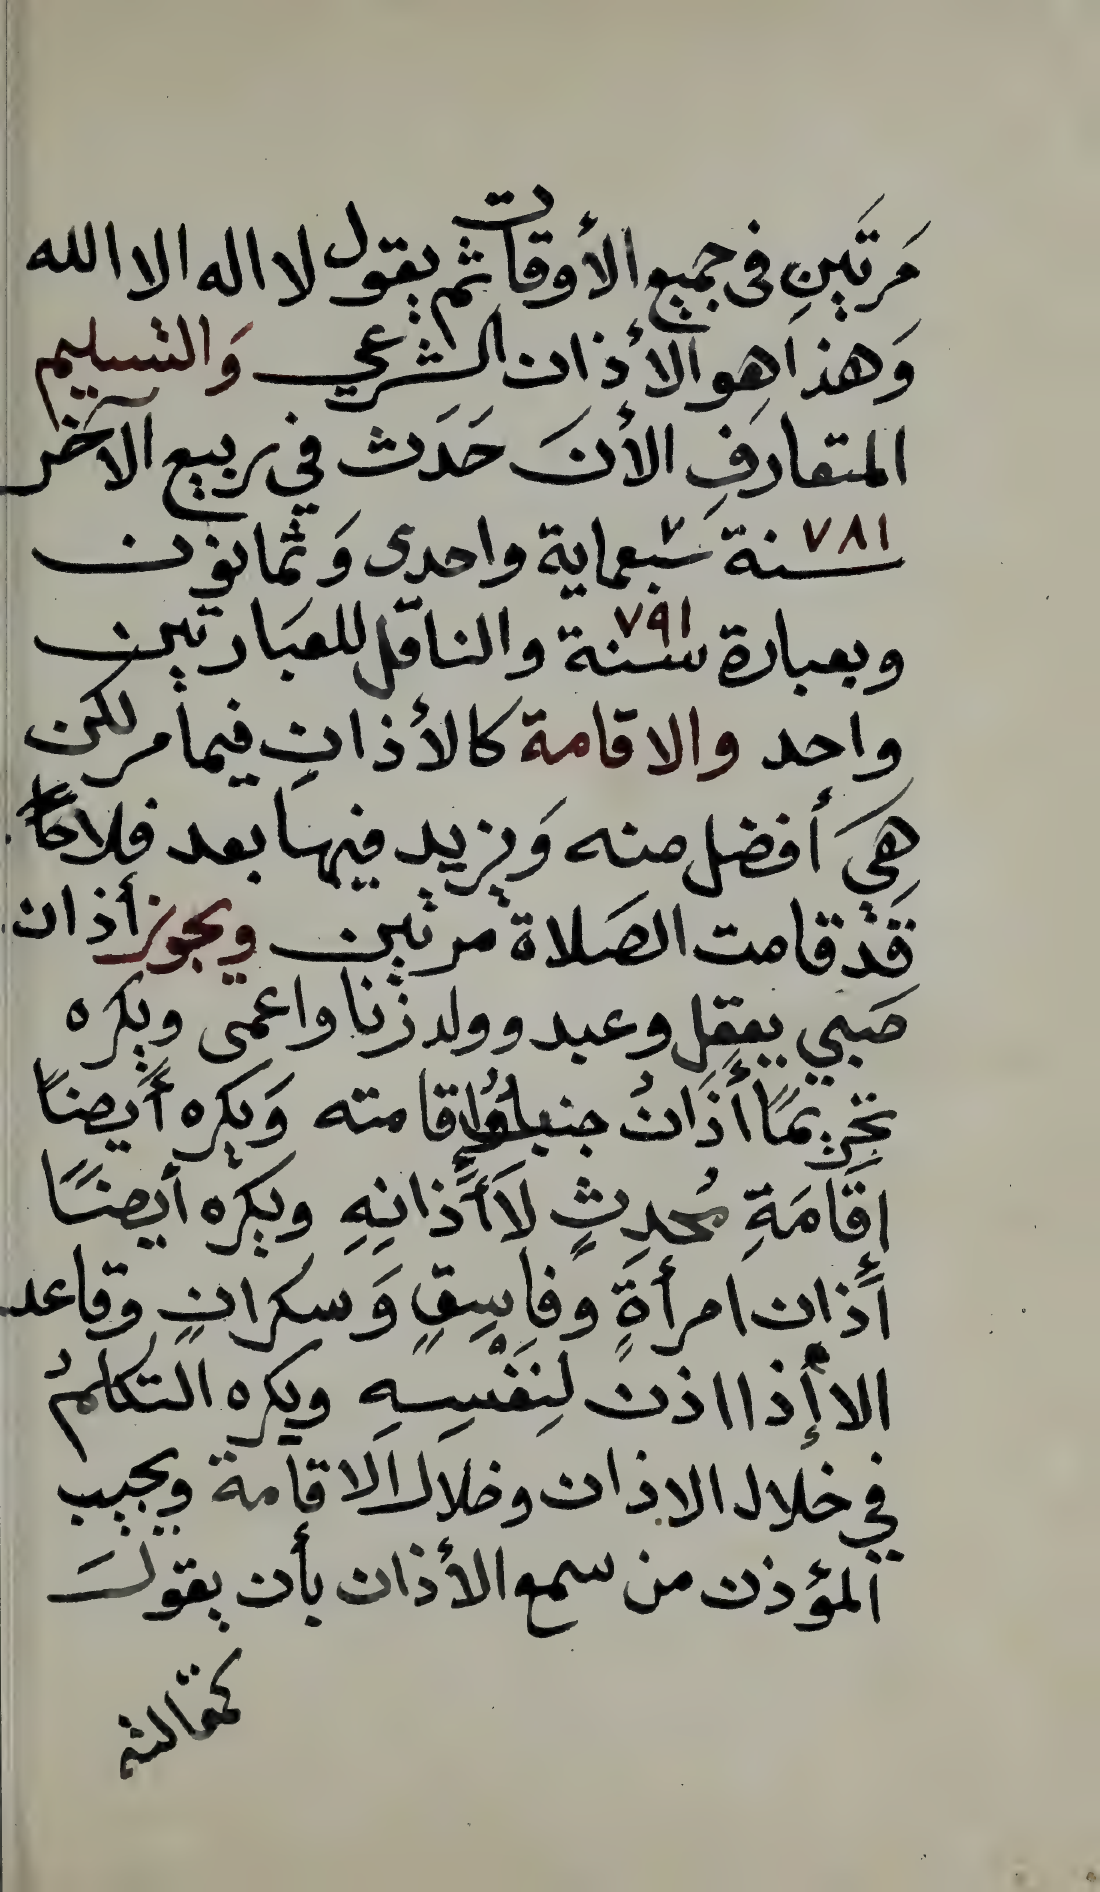 مَرتَينِ فى جميع الأوقات ثم يقول لا اله الا الله
وَهذا هو الأذان الشرعي وَالتسليم
المتعارفِ الأنَ حَدَث في ربيع الآخر
٧٨١ سنة سَبعماية واحدى وَثمانون
وبعبارة سنة ٧٩١ والناقل للعبَارتين
واحد والاقامة كالأذانِ فيما مر لكن
هيَ أفضل منه وَيزيد فيها بعد فلاحها
قَد قامت الصَلاة مرتين ويجوز أذان
صَبي يعقل وعبد وولد زنا واعمى ويكره
تحريمًا أذَانُ جنب واقامته وَيكره أيضًا
اقَامَةِ مُحدِثٍ لاَ أذانِهِ ويكره أيضًا
أذان امرأةٍ وفاسِقٍ وَسكرانٍ وقاعد
الا إذا اذن لِنَفْسِهِ ويكره التكلمُ
في خلال الاذان وخلال الاقامة ويجيب
المؤذن من سمع الأذان بأن يقولَ
كمقالته